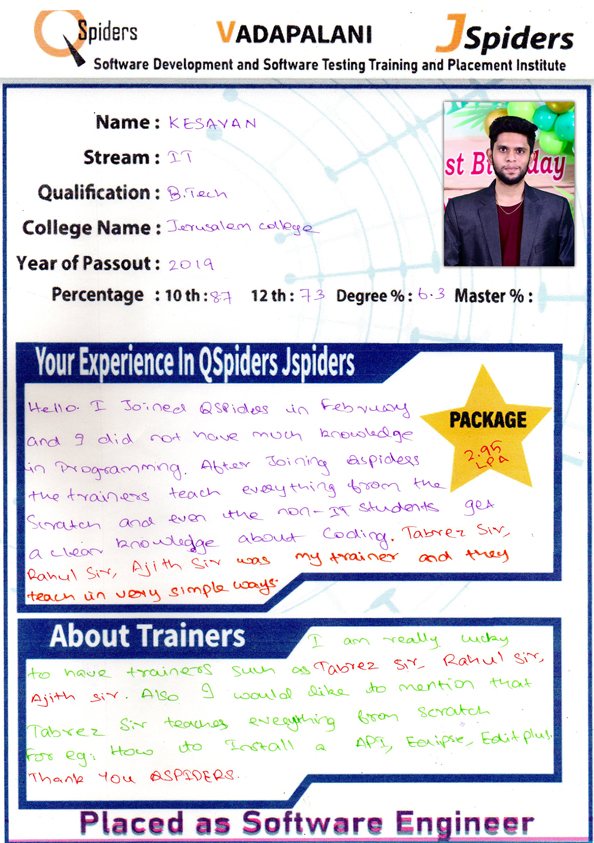 QSpiders
VADAPALANI
JSpiders
Software Development and Software Testing Training and Placement Institute
Name : KESAVAN
Stream : IT
Qualification : B.Tech
College Name : Jerusalem college
Year of Passout : 2019
Percentage : 10 th : 87 12 th : 73 Degree % : 6.3 Master % :
st Bi day
Your Experience In QSpiders Jspiders
PACKAGE
2.95
LPA
Hello. I Joined QSpides in February
and I did not have much knowledge
in Programming. After Joining Qspiders
the trainers teach everything from the
Scratch and even the non-IT students get
a clear knowledge about Coding. Tabrez Sir,
Rahul Sir, Ajith Sir was my trainer and they
teach in very simple ways.
About Trainers
I am really lucky
to have trainers such as Tabrez Sir, Rahul Sir,
Ajith sir. Also I would like to mention that
Tabrez Sir teaches everything from scratch
For eg: How to Install a API, Eclipse, Editplus.
Thank You QSPIDERS.
Placed as Software Engineer